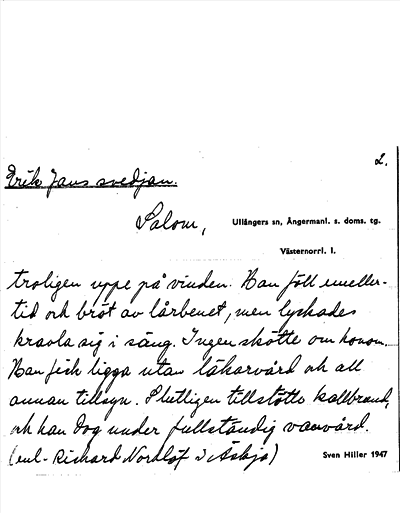 2.
Erik Jans svedjan.
Salom, Ullångers sn, Ångermanl. s. doms. tg.
Västernorrl. l.
troligen uppe på vinden. Han föll emeller-
tid och bröt av lårbenet, men lyckades
kravla sig i säng. Ingen skötte om honom.
Han fick ligga utan läkarvård och all
annan tillsyn. Slutligen tillstötte kallbrand,
och han dog under fullständig vanvård.
(enl. Richard Nordlöf i Äskja) Sven Hiller 1947